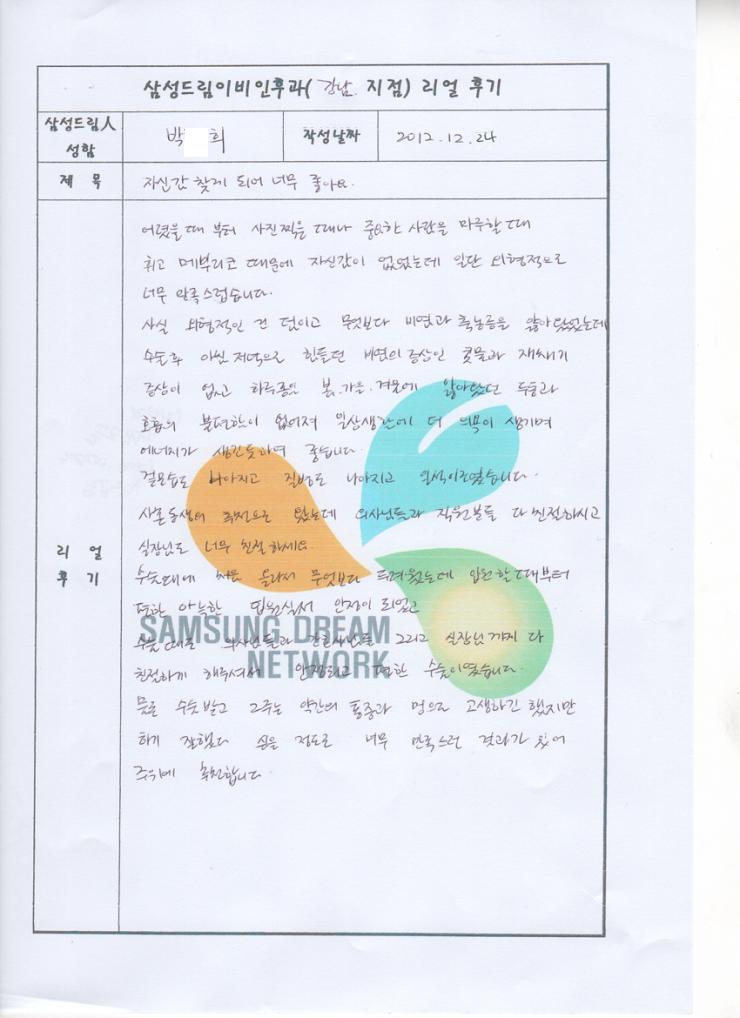 삼성드림이비인후과( 강남 지점) 리얼 후기
삼성드림人 성함
박 희
작성날짜
2012.12.24
제 목
자신감 찾게 되어 너무 좋아요.
리 얼
후 기
어렸을때 부터 사진찍을 때나 중요한 사람을 마주할때
휘고 메부리코 때문에 자신감이 없었는데 일단 외형적으로
너무 만족스럽습니다.
사실 외형적인 건 덤이고 무엇보다 비염과 축농증을 앓아왔었는데
수술후 아침 저녁으로 힘들던 비염의 증상인 콧물과 재채기
증상이 없고 하루종일 봄.가을.겨울에 앓아왔던 두통과
호흡의 불편함이 없어져 일상생활에 더 의욕이 생기며
에너지가 생긴듯하여 좋습니다.
겉모습도 나아지고 질병도 나아지고 일석이조였습니다.
사촌동생의 추천으로 왔는데 의사님들과 직원분들 다 친절하시고
실장님도 너무 친절하세요.
수술대에 처음 올라서 무엇보다 두려웠는데 입원할때부터
편한 아늑한 입원실서 안정이 되었고
수술 때도 의사님들과 간호사님들 그리고 실장님까지 다
친절하게 해주셔서 안정되고 편한 수술이였습니다.
물론 수술받고 2주는 약간의 통증과 멍으로 고생하긴 했지만
하기 잘했다 싶을 정도로 너무 만족스런 결과가 있어
주위에 추천합니다.
SAMSUNG DREAM
NETWORK